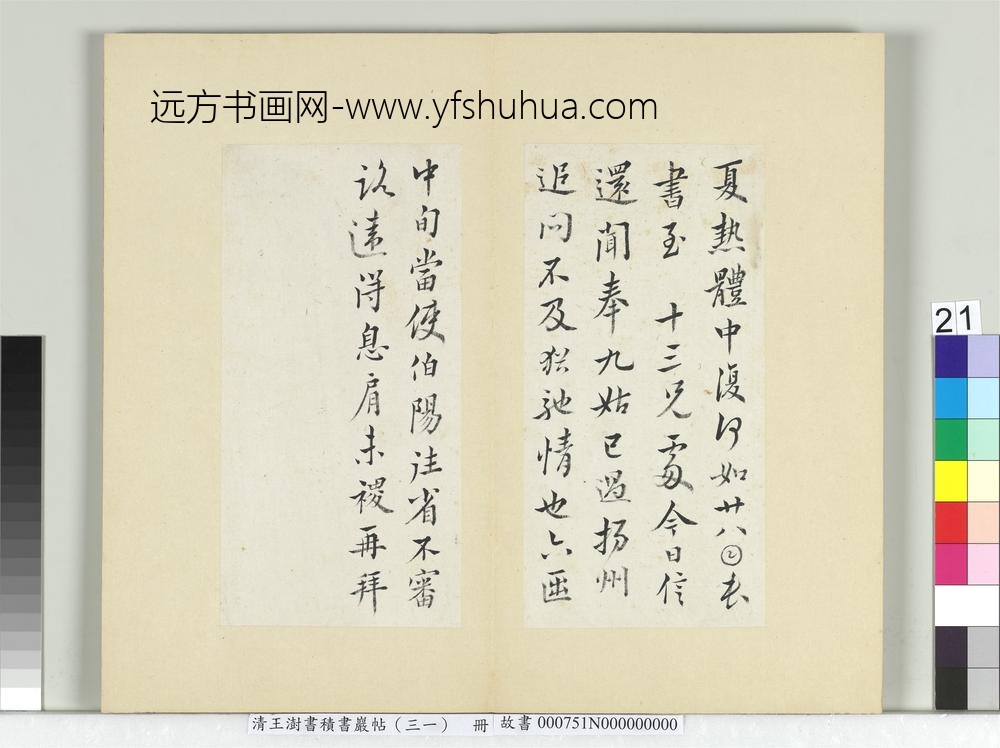 远方书画网-www.yfshuhua.com
夏熱體中復何如廿八𡆠
書至 十三兄處今日信
還聞奉九姑已過揚州
追問不及猶馳情也六𠥱
中旬當使伯陽往省不審
路遠得息肩未稷再拜
21
清王澍書積書巖帖（三一） 冊
故書 000751N000000000